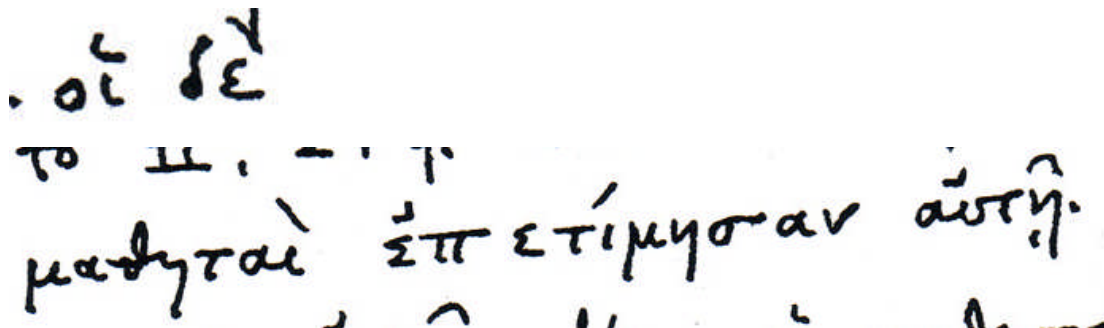 . οἱ δὲ
μαθηταὶ ἐπετίμησαν αὐτῇ.